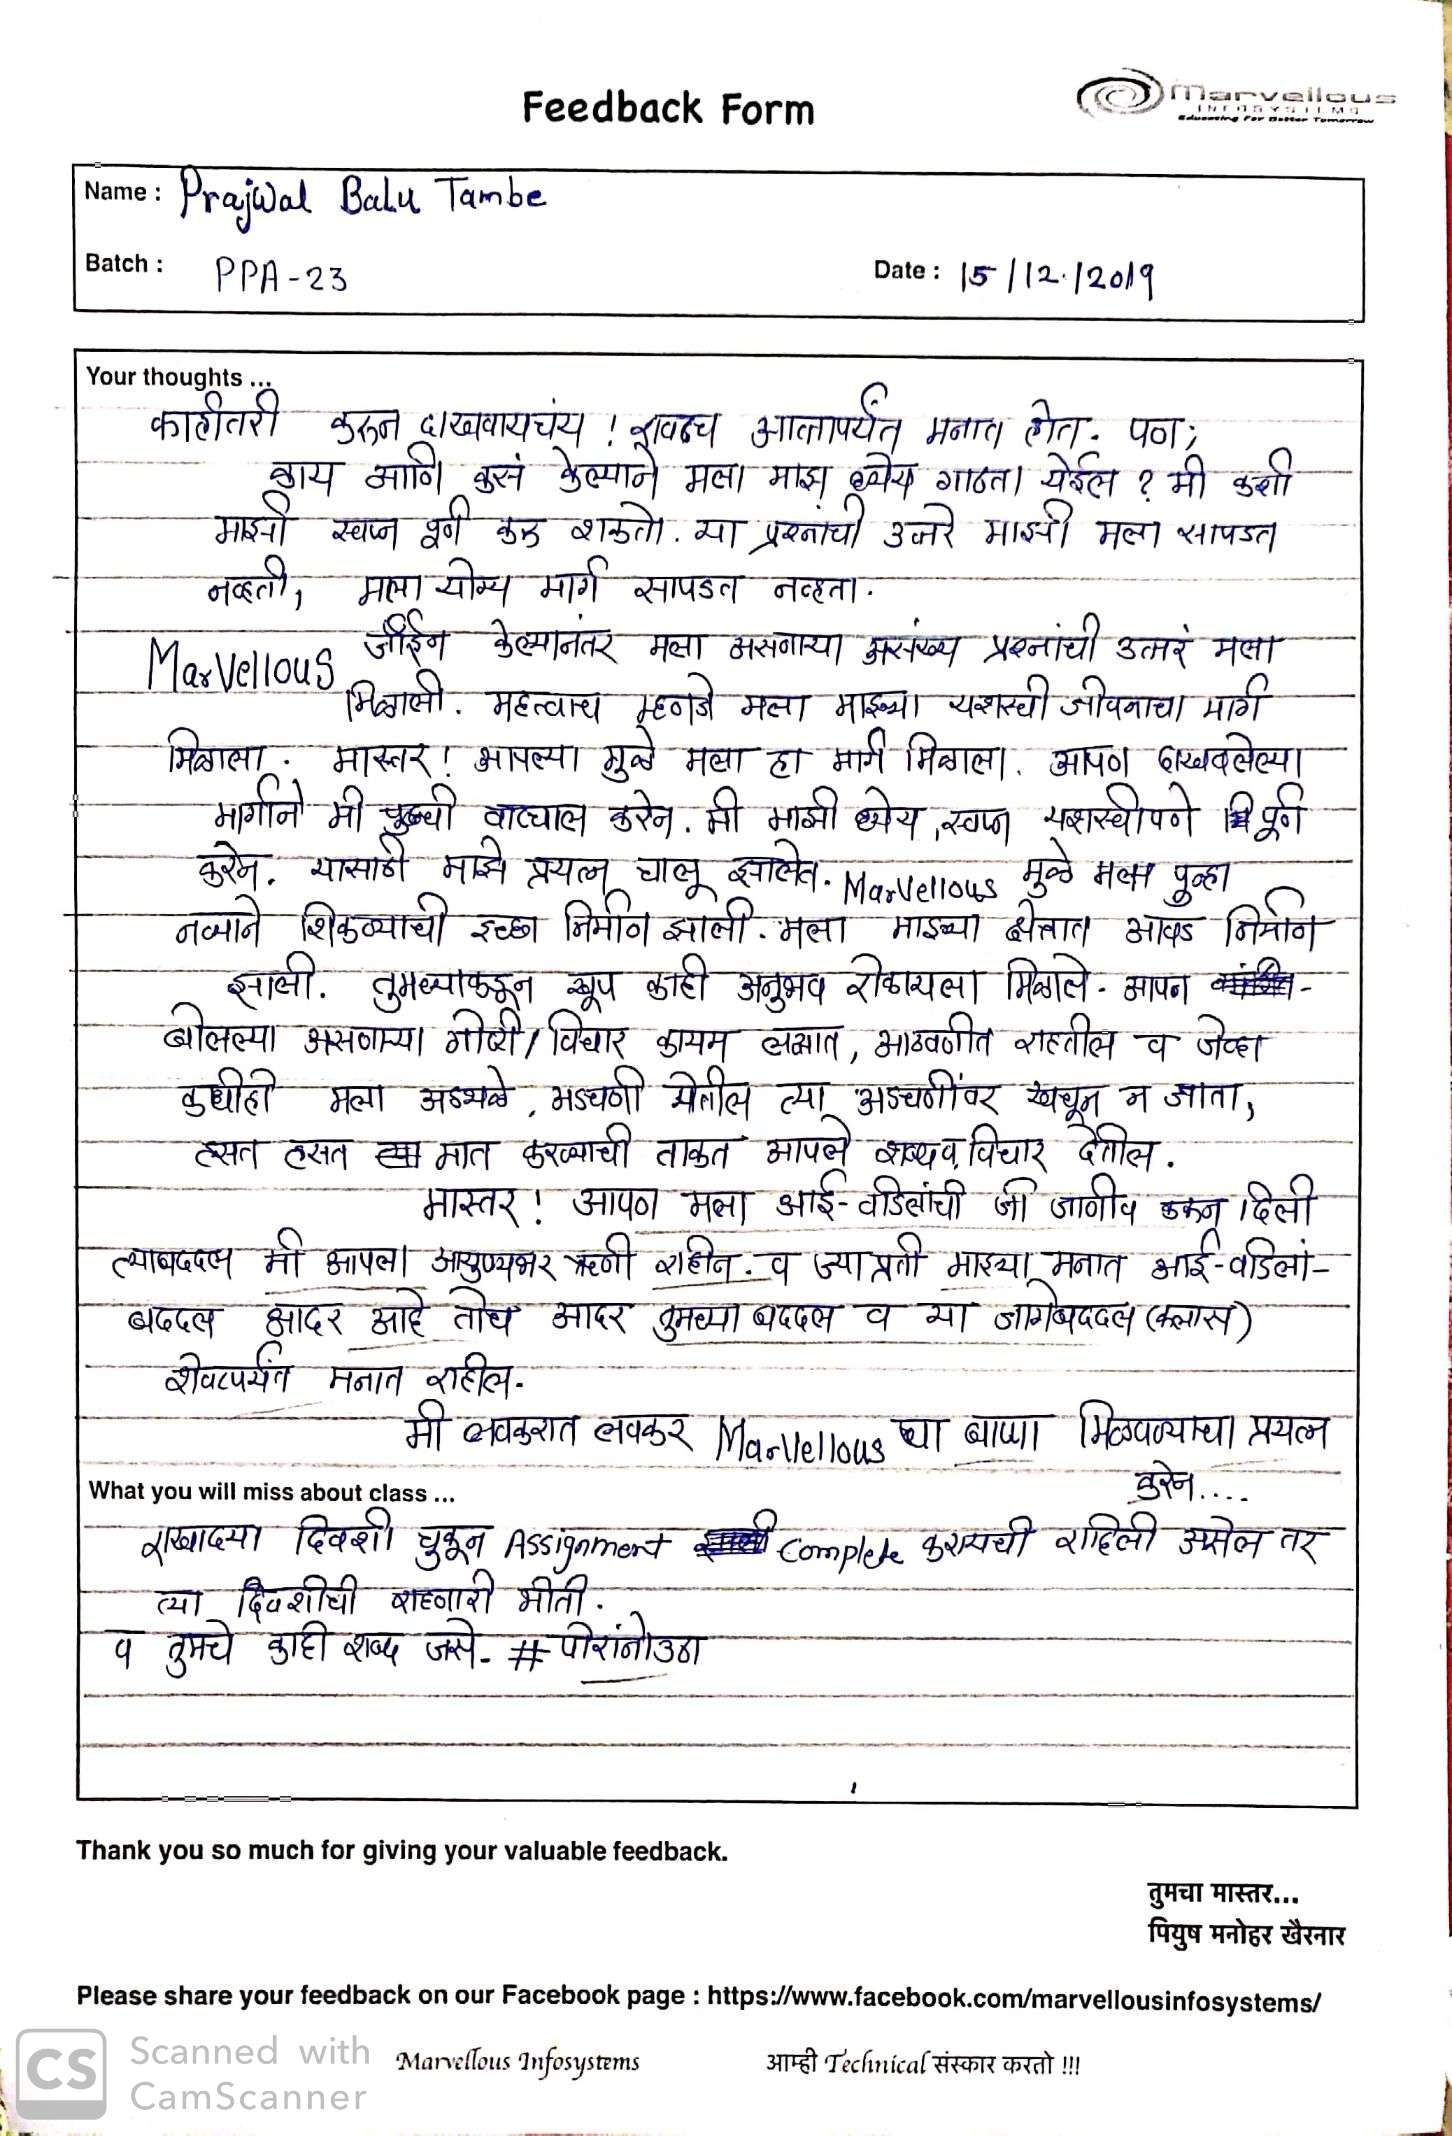 Feedback Form
marvellous
INFOSYSTEMS
Educating For Better Tomorrow
Name : Prajwal Balu Tambe
Batch : PPA-23
Date : 15/12/2019
Your thoughts ...
काहीतरी करून दाखवायचंय ! एवढच आत्तापर्यंत मनात होत. पण;
काय आणि कसं केल्याने मला माझ ध्येय गाठता येईल ? मी कशी
माझी स्वप्न पूर्ण करू शकतो. या प्रश्नांची उत्तरे माझी मला सापडत
नव्हती, मला योग्य मार्ग सापडत नव्हता.
Marvellous जॉईन केल्यानंतर मला असणाऱ्या असंख्य प्रश्नांची उत्तरं मला
मिळाली. महत्वाच म्हणजे मला माझ्या यशस्वी जीवनाचा मार्ग
मिळाला. मास्तर! आपल्या मुळे मला हा मार्ग मिळाला. आपण दाखवलेल्या
मार्गाने मी पुढची वाटचाल करेन. मी माझी ध्येय, स्वप्न यशस्वीपणे पूर्ण
करेन. यासाठी माझे प्रयत्न चालू झालेत. Marvellous मुळे मला पुन्हा
नव्याने शिकण्याची इच्छा निर्माण झाली. मला माझ्या क्षेत्रात आवड निर्माण
झाली. तुमच्याकडून खूप काही अनुभव ऐकायला मिळाले. आपण
बोलल्या असणाऱ्या गोष्टी / विचार कायम लक्षात, आठवणीत राहतील व जेव्हा
कधीही मला अडथळे, अडचणी येतील त्या अडचणींवर खचून न जाता,
हसत हसत मात करण्याची ताकत आपले शब्द व विचार देतील.
मास्तर! आपण मला आई-वडिलांची जी जाणीव करून दिली
त्याबददल मी आपला आयुष्यभर ऋणी राहीन. व ज्या प्रती माझ्या मनात आई-वडिलां-
बददल आदर आहे तोच आदर तुमच्या बददल व या जागेबददल (क्लास)
शेवटपर्यंत मनात राहील.
मी लवकरात लवकर Marvellous चा बाप्पा मिळवण्याचा प्रयत्न
करेन....
What you will miss about class ...
एखादया दिवशी चुकून Assignment complete करायची राहिली असेल तर
त्या दिवशीची राहणारी भीती.
व तुमचे काही शब्द जसे- #पोरांनोउठा
Thank you so much for giving your valuable feedback.
तुमचा मास्तर...
पियुष मनोहर खैरनार
Please share your feedback on our Facebook page : https://www.facebook.com/marvellousinfosystems/
CS Scanned with
CamScanner
Marvellous Infosystems
आम्ही Technical संस्कार करतो !!!